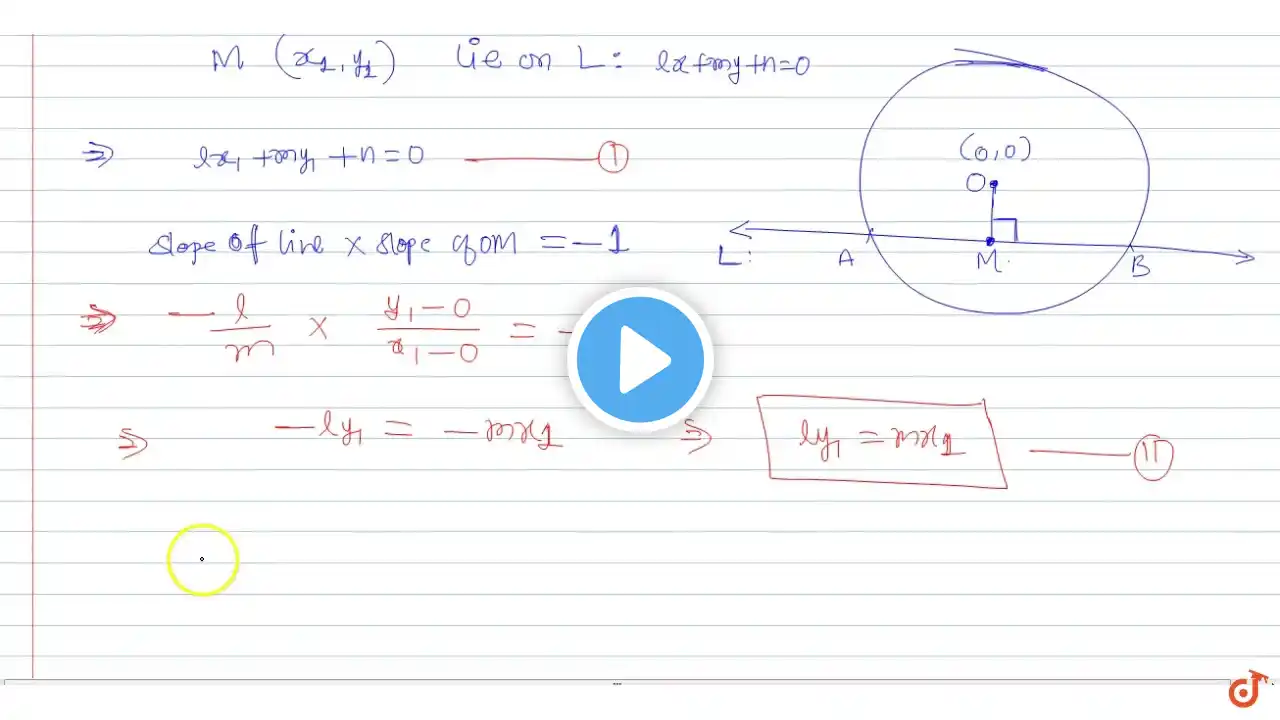 M (x₁, y₁) lie on L: lx+my+n=0
⇒ lx₁ + my₁ + n = 0 ——— Ⓘ
(0,0)
O
slope of line × slope of OM = -1
L: A M. B
⇒ -l/m × (y₁-0)/(x₁-0) = -
⇒ -ly₁ = -mx₁ ⇒ ly₁ = mx₁ ——— ⓘⓘ